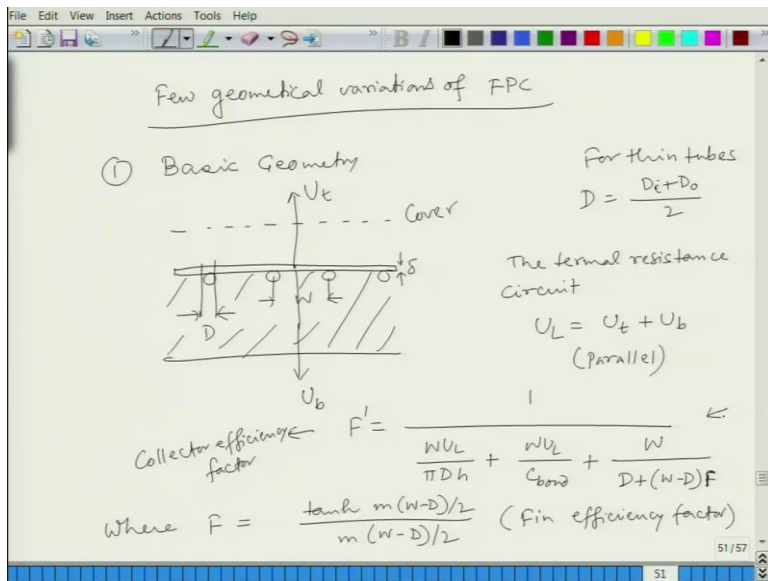 File Edit View Insert Actions Tools Help
Few geometical variations of FPC
① Basic Geometry
For thin tubes
D = (Di+Do)/2
Ut
Cover
δ
W
D
Ub
The termal resistance
circuit
UL = Ut + Ub
(Parallel)
Collector efficiency ← F' = 1 / (WUL/πDh + WUL/Cbond + W/(D+(W-D)F)) ←
factor
Where F = tanh m(W-D)/2 / m(W-D)/2 (Fin efficiency factor)
51/57
51